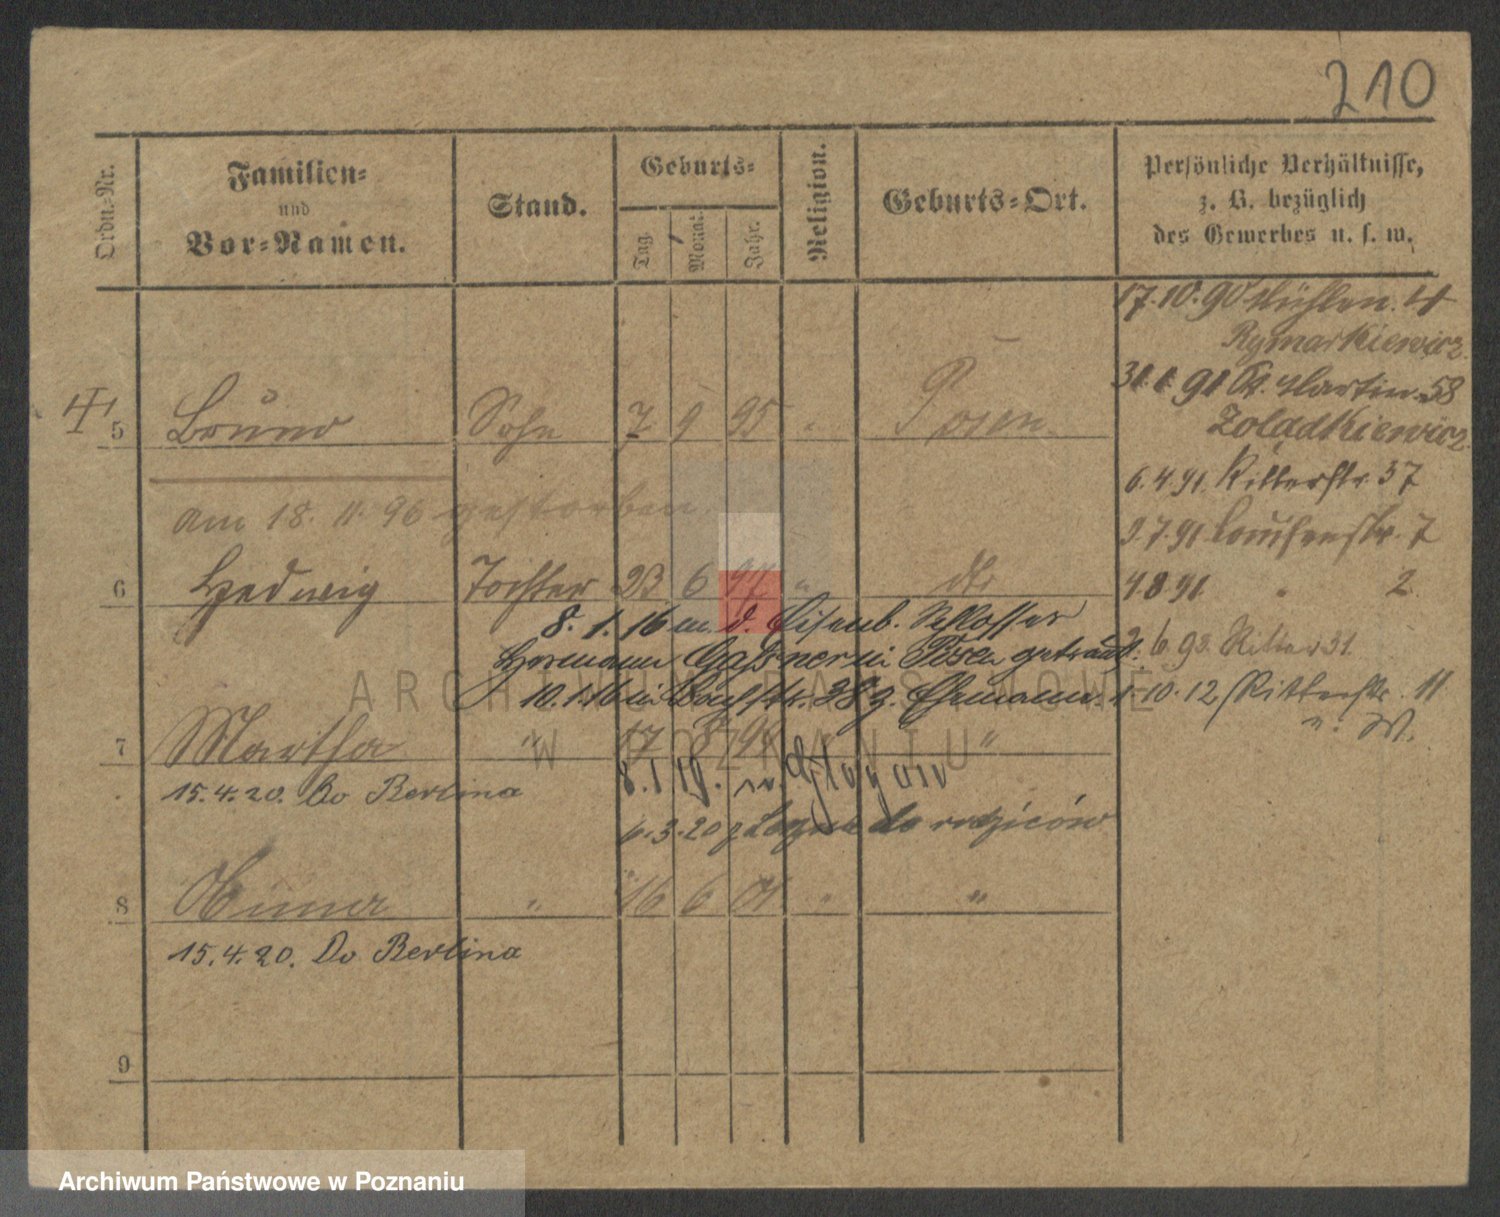 210
Ordn.-Nr.
Familien-
und
Vor-Namen.
Stand.
Geburts-
Tag.
Monat
Jahr.
Religion.
Geburts-Ort.
Persönliche Verhältnisse,
z. B. bezüglich
des Gewerbes u. s. w.
17.10.90 Mühlen. 4
Rymarkiewicz
31.1.91 St. Martin 58
Zoladkiewicz
6.4.91. Ritterstr. 37
3.7.91 Louisenstr. 7
4.8.91 " 2
6.93. Ritter 31.
1.10.12 Ritterstr. 11
5 Bruno Sohn 7 9 95 " Posen
am 18.11.96 gestorben
6 Hedwig Tochter 23 6 97 " dto
8.1.16 m. d. Eisenb. Schlosser
Hermann Gassner in Posen getraut.
10.1.16 in Bachstr. 28 z. Ehemann.
7 Martha " 17 8 98 "
8.1.19. n. Glogau
15.4.20. Do Berlina
6.3.20 z do rodziców
8 " 16 6 01 " "
15.4.20. Do Berlina
9
ARCHIWUM PAŃSTWOWE
W POZNANIU
Archiwum Państwowe w Poznaniu